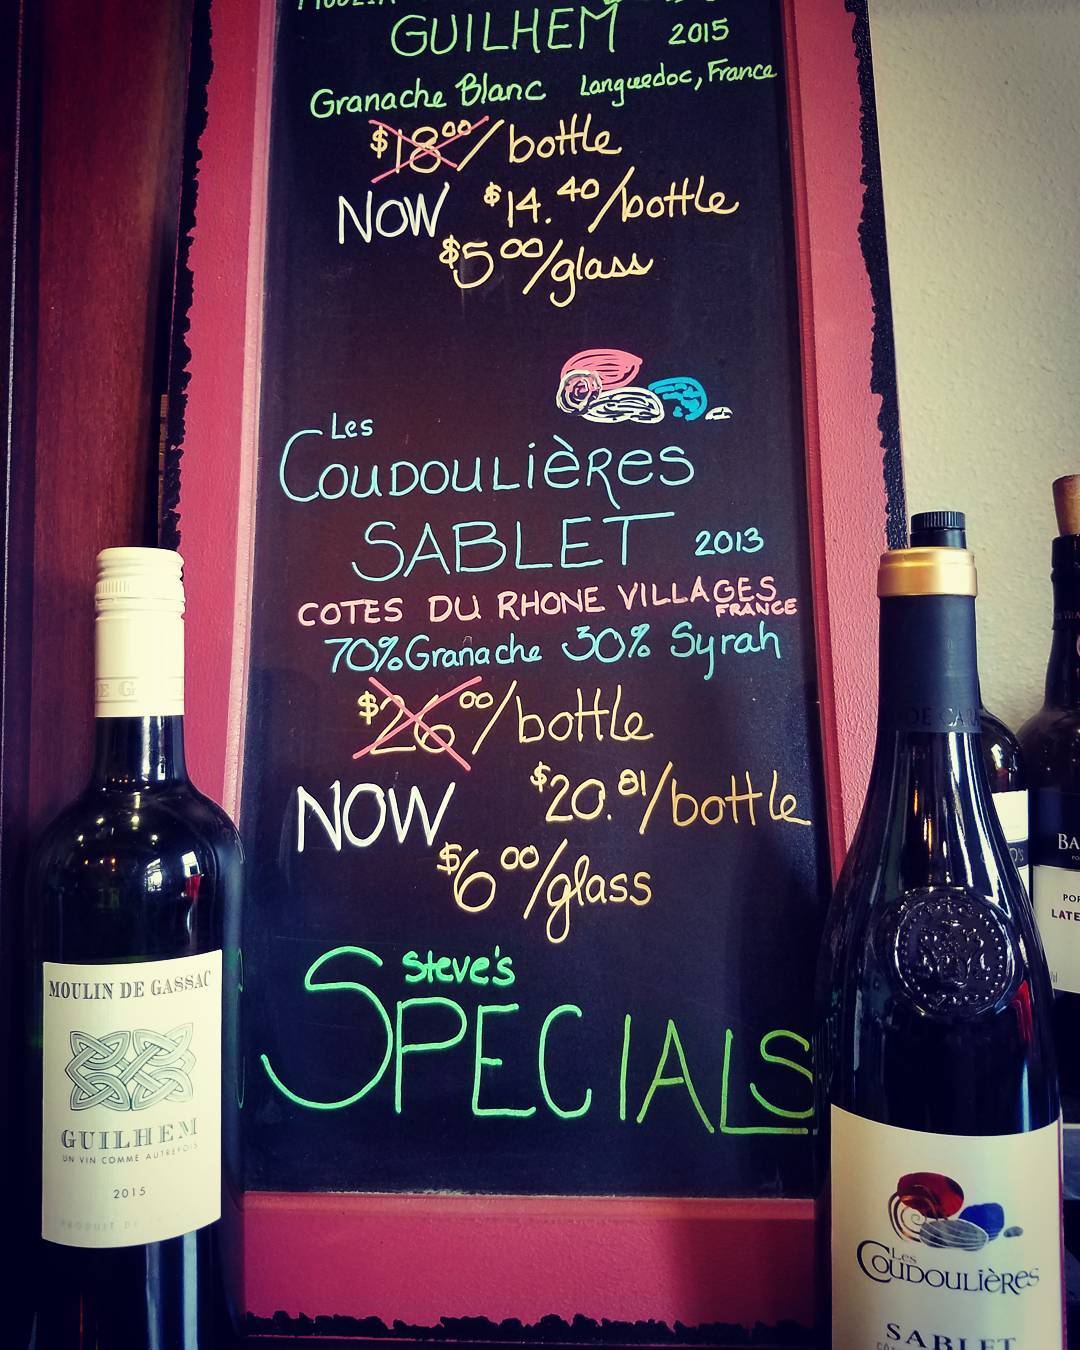 GUILHEM 2015
Granache Blanc Languedoc, France
$18.00/bottle
NOW $14.40/bottle
$5.00/glass
Les
COUDOULIÈRES
SABLET 2013
COTES DU RHONE VILLAGES
FRANCE
70% Granache 30% Syrah
$26.00/bottle
NOW $20.81/bottle
$6.00/glass
Steve's
SPECIALS
MOULIN DE GASSAC
GUILHEM
UN VIN COMME AUTREFOIS
2015
PRODUIT DE
Les
COUDOULIÈRES
SABLET
BA
LATE